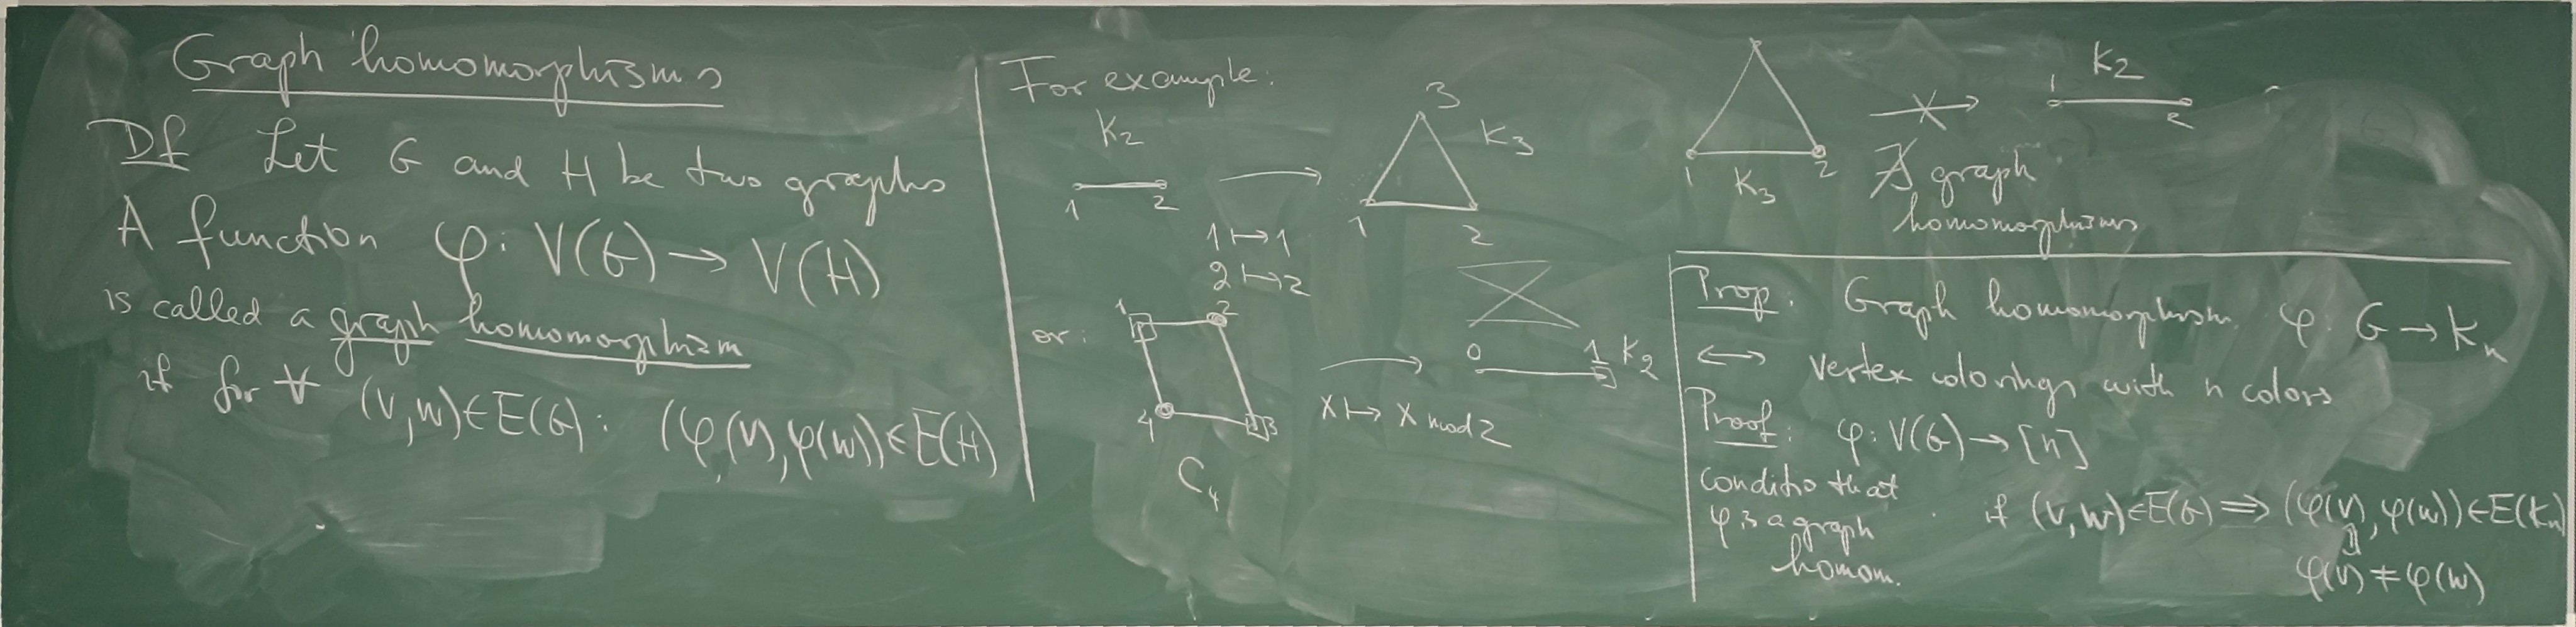 Graph homomorphisms
Df Let G and H be two graphs
A function φ: V(G) → V(H)
is called a graph homomorphism
if for ∀ (v,w)∈E(G): (φ(v),φ(w))∈E(H)
For example:
K2
1 2
3
K3
1 2
1↦1
2↦2
or:
1 2
4 3
C4
x↦x mod 2
0 1 K2
1 2
K3
∄ graph
homomorphisms
K2
1
2
Prop. Graph homomorphism φ: G→Kn
↔ vertex colorings with n colors
Proof: φ: V(G)→[n]
conditio that
φ is a graph
homom.
if (v,w)∈E(G)⟹(φ(v),φ(w))∈E(Kn)
⇕
φ(v)≠φ(w)